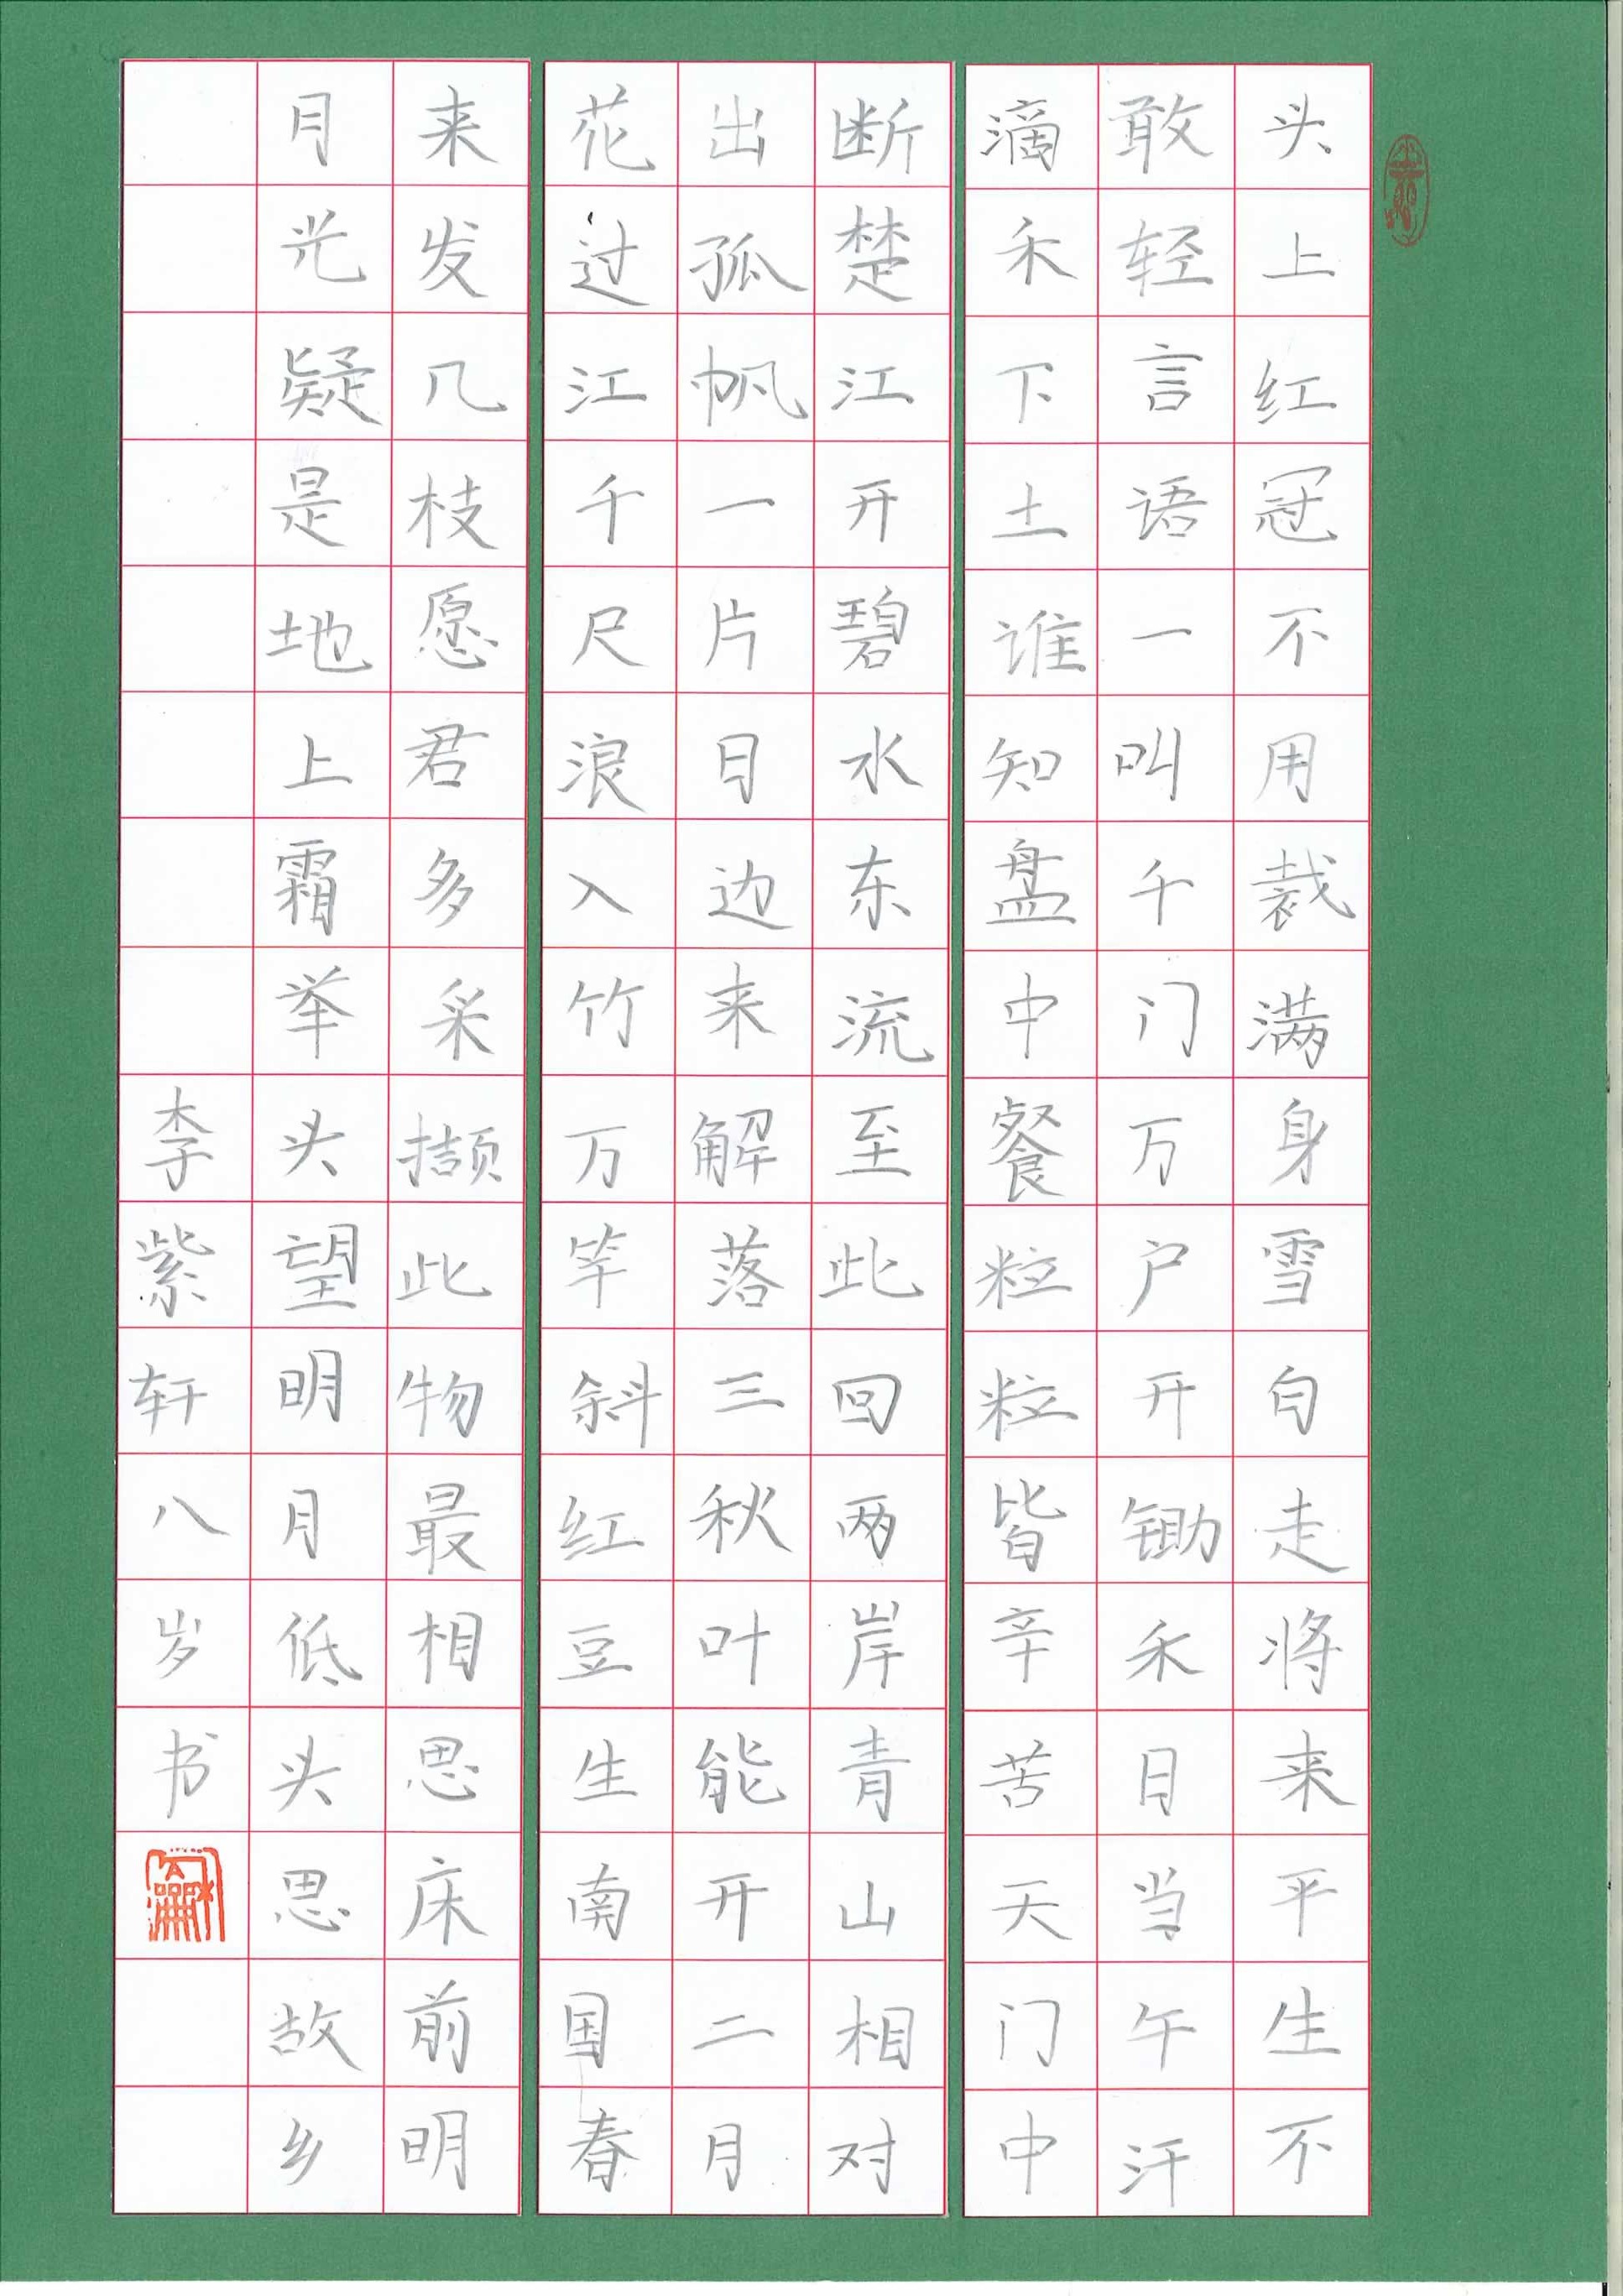 头上红冠不用裁满身雪白走将来平生不
敢轻言语一叫千门万户开锄禾日当午汗
滴禾下土谁知盘中餐粒粒皆辛苦天门中
断楚江开碧水东流至此回两岸青山相对
出孤帆一片日边来解落三秋叶能开二月
花过江千尺浪入竹万竿斜红豆生南国春
来发几枝愿君多采撷此物最相思床前明
月光疑是地上霜举头望明月低头思故乡
李紫轩八岁书